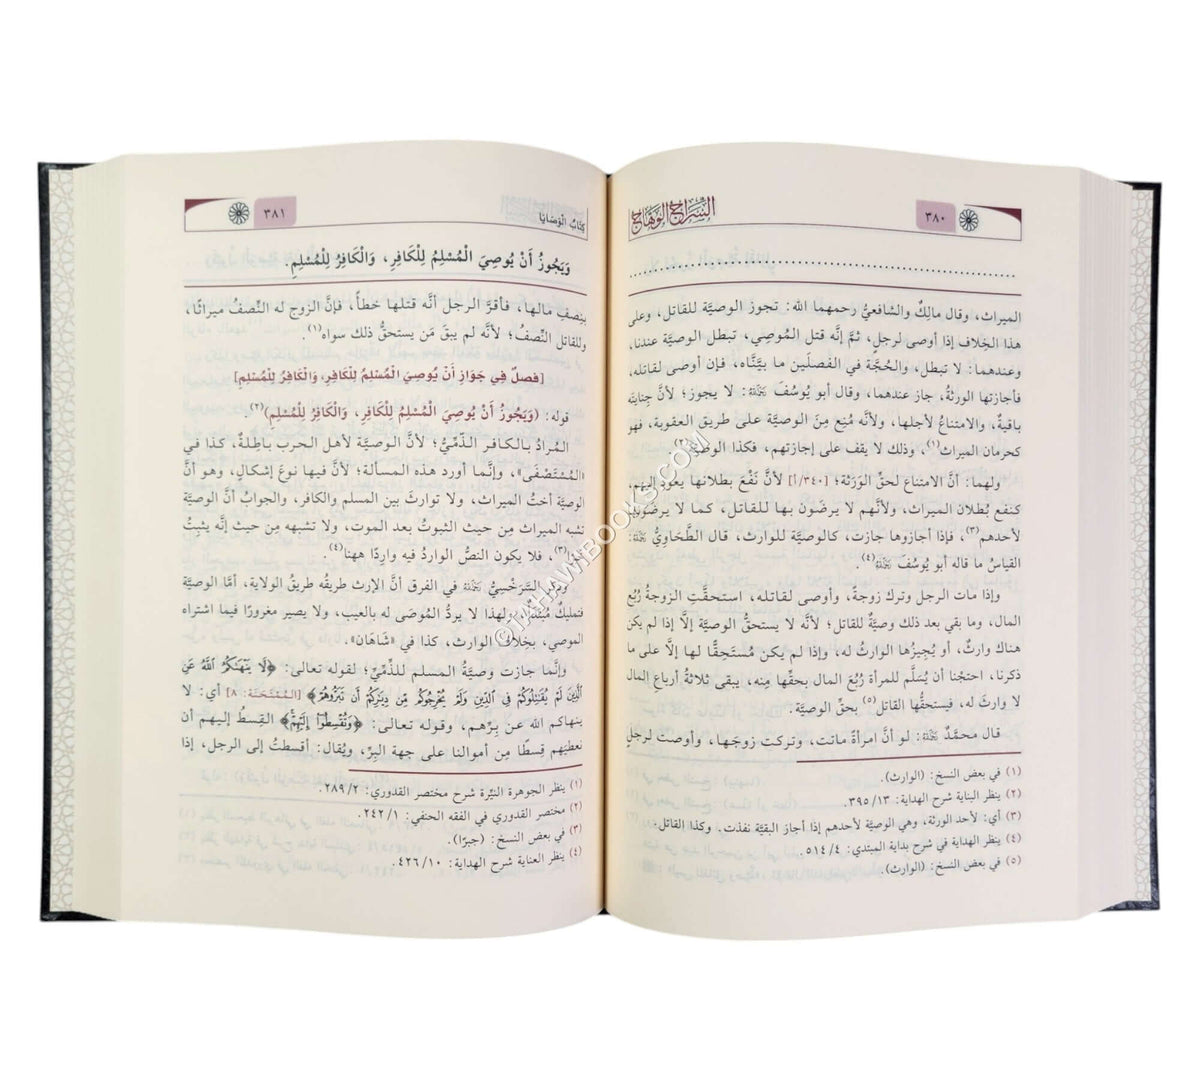 ٣٨٠
السراج الوهاج
الميراث، وقال مالِكٌ والشافعيُّ رحمهما الله: تجوز الوصيَّة للقاتل، وعلى
هذا الخِلاف إذا أوصى لرجلٍ، ثمَّ إنَّه قتل المُوصِي، تبطل الوصيَّة عندنا،
وعندهما: لا تبطل، والحُجَّة في الفصلَين ما بيَّنَّاه، فإن أوصى لقاتله،
فأجازتها الورثةُ، جاز عندهما، وقال أبو يُوسُفَ رَحِمَهُ اللهُ: لا يجوز؛ لأنَّ جِنايتَه
باقيةٌ، والامتناعُ لأجلها، ولأنَّه مُنِع مِنَ الوصيَّة على طريق العقوبة، فهو
كحرمان الميراث(١)، وذلك لا يقف على إجازتهم، فكذا الوصيَّة(٢).
ولهما: أنَّ الامتناع لحقِّ الوَرَثة؛ [٣٤٠/أ] لأنَّ نَفْعَ بطلانها يعُود إليهم،
كنفع بُطلان الميراث، ولأنَّهم لا يرضَون بها للقاتل، كما لا يرضَونها
لأحدهم(٣)، فإذا أجازوها جازت، كالوصيَّة للوارث، قال الطَّحَاوِيُّ رَحِمَهُ اللهُ:
القياسُ ما قاله أبو يُوسُفَ رَحِمَهُ اللهُ(٤).
وإذا مات الرجل وترك زوجةً، وأوصى لقاتله، استحقَّتِ الزوجةُ رُبُعَ
المال، وما بقي بعد ذلك وصيَّةٌ للقاتل؛ لأنَّه لا يستحقُّ الوصيَّة إلَّا إذا لم يكن
هناك وارثٌ، أو يُجِيزُها الوارثُ له، وإذا لم يكن مُستَحِقًّا لها إلَّا على ما
ذكرنا، احتجْنا أن يُسَلَّم للمرأة رُبُعُ المال بحقِّها مِنه، يبقى ثلاثةُ أرباعِ المال
لا وارثَ له، فيستحقُّها القاتل(٥) بحقِّ الوصيَّة.
قال محمَّدٌ رَحِمَهُ اللهُ: لو أنَّ امرأةً ماتت، وتركت زوجَها، وأوصت لرجلٍ
(١) في بعض النسخ: (الوارث).
(٢) ينظر البناية شرح الهداية: ٣٩٥/١٣.
(٣) أي: لأحد الورثة، وهي الوصيَّة لأحدهم إذا أجاز البقيَّة نفذت. وكذا القاتل.
(٤) ينظر الهداية في شرح بداية المبتدي: ٥١٤/٤.
(٥) في بعض النسخ: (الوارث).
كِتَابُ الْوَصَايَا
٣٨١
وَيَجُوزُ أَنْ يُوصِيَ الْمُسْلِمُ لِلْكَافِرِ، وَالْكَافِرُ لِلْمُسْلِمِ.
بنِصفِ مالها، فأقرَّ الرجل أنَّه قتلها خطأً، فإنَّ الزوج له النِّصفُ ميراثًا،
وللقاتل النِّصفُ؛ لأنَّه لم يبقَ مَن يستحقُّ ذلك سواه(١).
[فصلٌ فِي جَوَازِ أَنْ يُوصِيَ الْمُسْلِمُ لِلْكَافِرِ، وَالْكَافِرُ لِلْمُسْلِمِ]
قوله: (وَيَجُوزُ أَنْ يُوصِيَ الْمُسْلِمُ لِلْكَافِرِ، وَالْكَافِرُ لِلْمُسْلِمِ)(٢)
المُرادُ بالكافر الذِّمِّيُّ؛ لأنَّ الوصيَّة لأهل الحرب باطِلةٌ، كذا في
«المُسْتَصْفَى»، وإنَّما أورد هذه المسألة؛ لأنَّ فيها نوعَ إشكالٍ، وهو أنَّ
الوصيَّة أختُ الميراث، ولا توارثَ بين المسلم والكافر، والجوابُ أنَّ الوصيَّة
تشبه الميراث مِن حيث الثبوتُ بعد الموت، ولا تشبهه مِن حيث إنَّه يثبتُ
(٣)، فلا يكون النصُّ الواردُ فيه واردًا ههنا(٤).
السَّرَخْسِيُّ رَحِمَهُ اللهُ في الفرق أنَّ الإرث طريقُه طريقُ الولاية، أمَّا الوصيَّة
فتمليكٌ ولهذا لا يردُّ المُوصَى له بالعيب، ولا يصير مغرورًا فيما اشتراه
الموصي، بخِلاف الوارث، كذا في «شَاهَان».
وإنَّما جازت وصيَّةُ المسلم للذِّمِّيِّ؛ لقوله تعالى: ﴿لَا يَنْهَىٰكُمُ ٱللَّهُ عَنِ
ٱلَّذِينَ لَمْ يُقَٰتِلُوكُمْ فِى ٱلدِّينِ وَلَمْ يُخْرِجُوكُم مِّن دِيَٰرِكُمْ أَن تَبَرُّوهُمْ﴾ [المُمْتَحَنَة: ٨] أي: لا
ينهاكم الله عن بِرِّهم، وقوله تعالى: ﴿وَتُقْسِطُوٓا۟ إِلَيْهِمْ﴾ القِسطُ إليهم أن
نعطيَهم قِسطًا مِن أموالنا على جهة البِرِّ، ويُقال: أقسطتُ إلى الرجل، إذا
(١) ينظر الجوهرة النيِّرة شرح مختصر القدوري: ٢٨٩/٢.
(٢) مختصر القدوري في الفقه الحنفي: ٢٤٢/١.
(٣) في بعض النسخ: (جبرًا).
(٤) ينظر العناية شرح الهداية: ٤٢٦/١٠.
©TAHAWIBOOKS.COM